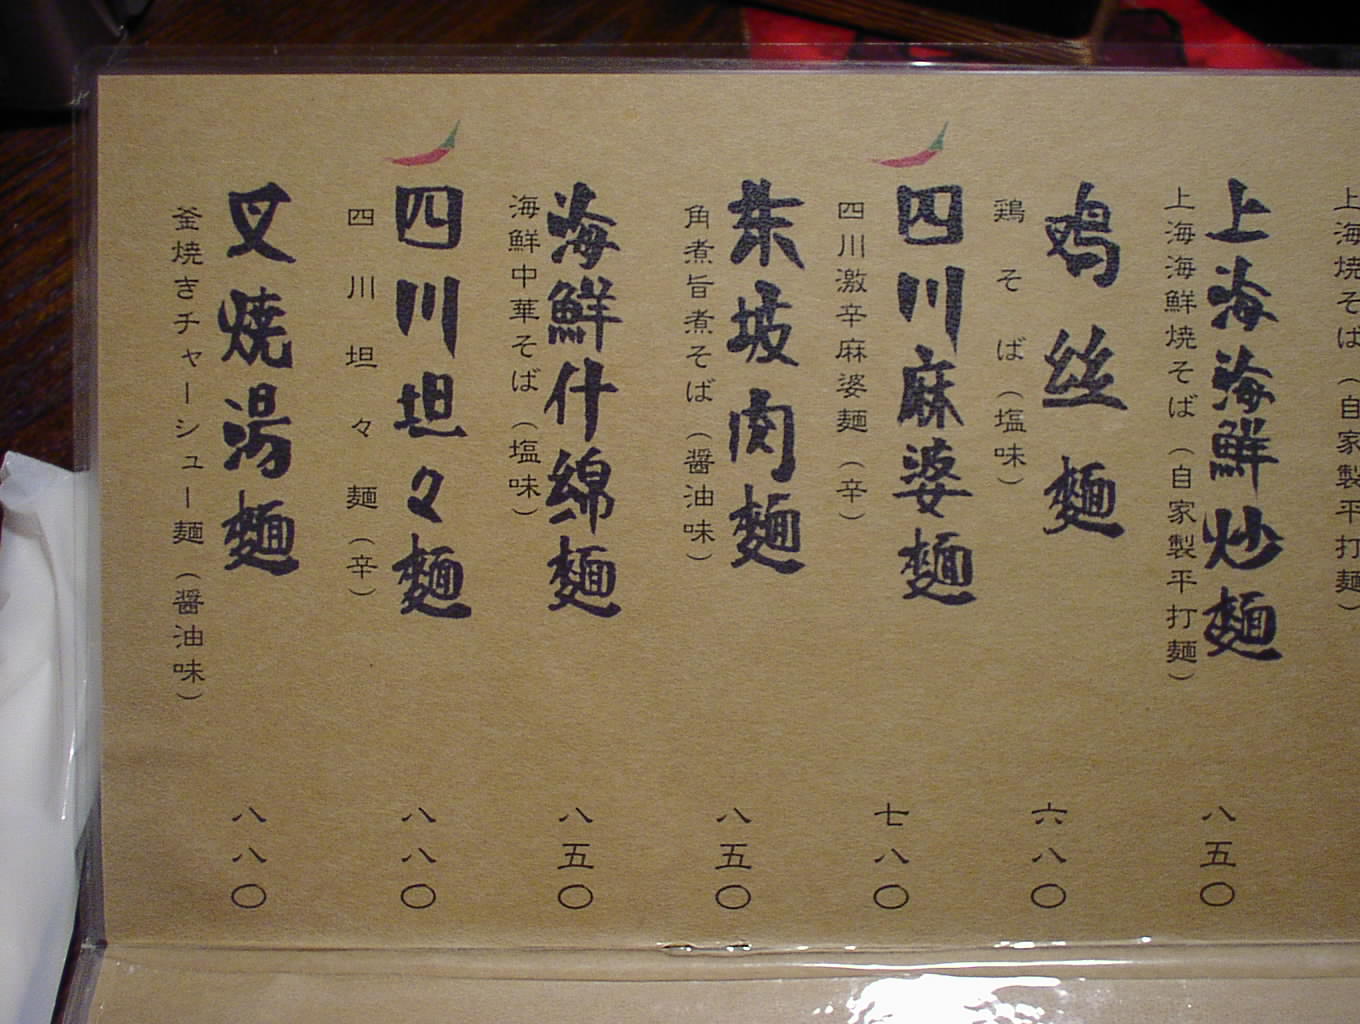 上海焼そば（自家製平打麺）
上海海鮮炒麺
上海海鮮焼そば（自家製平打麺）
八五〇
鸡丝麺
鶏そば（塩味）
六八〇
四川麻婆麺
四川激辛麻婆麺（辛）
七八〇
东坡肉麺
角煮旨煮そば（醤油味）
八五〇
海鮮什绵麺
海鮮中華そば（塩味）
八五〇
四川坦々麺
四川坦々麺（辛）
八八〇
叉焼湯麺
釜焼きチャーシュー麺（醤油味）
八八〇